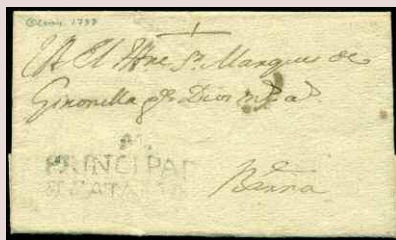 1788
A El Illne Sr. Marques de
Gironella gde Dios ms as
PRINCIPAT
DE CATALVÑA
Barna